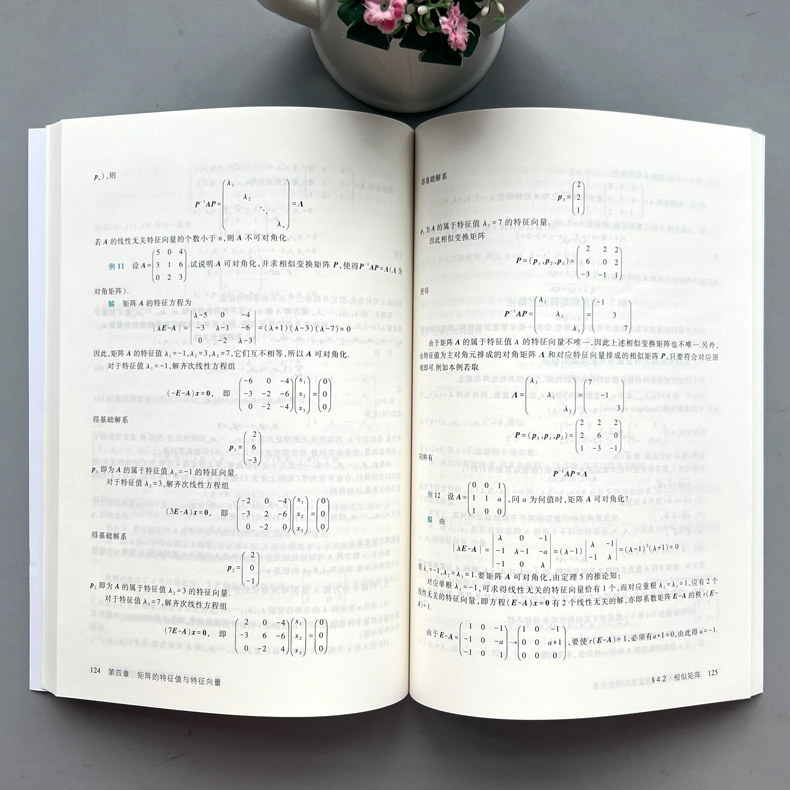 p_n),则
P⁻¹AP=(λ₁ λ₂ ⋱ λ_n)=Λ
若 A 的线性无关特征向量的个数小于 n,则 A 不可对角化.
例 11 设 A=(5 0 4; 3 1 6; 0 2 3),试说明 A 可对角化,并求相似变换矩阵 P,使得P⁻¹AP=Λ(Λ 为
对角矩阵).
解 矩阵 A 的特征方程为
|λE-A|=|λ-5 0 -4; -3 λ-1 -6; 0 -2 λ-3|=(λ+1)(λ-3)(λ-7)=0
因此,矩阵 A 的特征值 λ₁=-1,λ₂=3,λ₃=7,它们互不相等,所以 A 可对角化.
对于特征值 λ₁=-1,解齐次线性方程组
(-E-A)x=0, 即 (-6 0 -4; -3 -2 -6; 0 -2 -4)(x₁; x₂; x₃)=(0; 0; 0)
得基础解系
p₁=(2; 6; -3)
p₁ 即为 A 的属于特征值 λ₁=-1 的特征向量.
对于特征值 λ₂=3,解齐次线性方程组
(3E-A)x=0, 即 (-2 0 -4; -3 2 -6; 0 -2 0)(x₁; x₂; x₃)=(0; 0; 0)
得基础解系
p₂=(2; 0; -1)
p₂ 即为 A 的属于特征值 λ₂=3 的特征向量.
对于特征值 λ₃=7,解齐次线性方程组
(7E-A)x=0, 即 (2 0 -4; -3 6 -6; 0 -2 4)(x₁; x₂; x₃)=(0; 0; 0)
124 第四章 矩阵的特征值与特征向量
得基础解系
p₃=(2; 2; 1)
p₃为 A 的属于特征值 λ₃=7 的特征向量.
因此相似变换矩阵
P=(p₁,p₂,p₃)=(2 2 2; 6 0 2; -3 -1 1)
使得
P⁻¹AP=(λ₁ λ₂ λ₃)=(-1 3 7)
由于矩阵 A 的属于特征值 λ 的特征向量不唯一,因此上述相似变换矩阵也不唯一.另外,
由特征值为主对角元排成的对角矩阵 Λ 和对应特征向量排成的相似矩阵 P,只要符合对应原
则即可.例如本例若取
Λ=(λ₃ λ₁ λ₂)=(7 -1 3),
P=(p₃,p₁,p₂)=(2 2 2; 2 6 0; 1 -3 -1)
同样有
P⁻¹AP=Λ
例 12 设 A=(0 0 1; 1 1 a; 1 0 0),问 a 为何值时,矩阵 A 可对角化?
解 由
|λE-A|=|λ 0 -1; -1 λ-1 -a; -1 0 λ|=(λ-1)|λ -1; -1 λ|=(λ-1)²(λ+1)=0
得 λ₁=-1,λ₂=λ₃=1.要矩阵 A 可对角化,由定理 5 的推论知:
对应单根 λ₁=-1,可求得线性无关的特征向量恰有 1 个,而对应重根 λ₂=λ₃=1,应有 2 个
线性无关的特征向量,即方程(E-A)x=0 有 2 个线性无关的解,亦即系数矩阵 E-A 的秩 r(E-
A)=1.
由于 E-A=(1 0 -1; -1 0 -a; -1 0 1)→(1 0 -1; 0 0 a+1; 0 0 0),要使 r(E-A)=1,必须有a+1=0,由此得 a=-1.
§4.2 相似矩阵 125